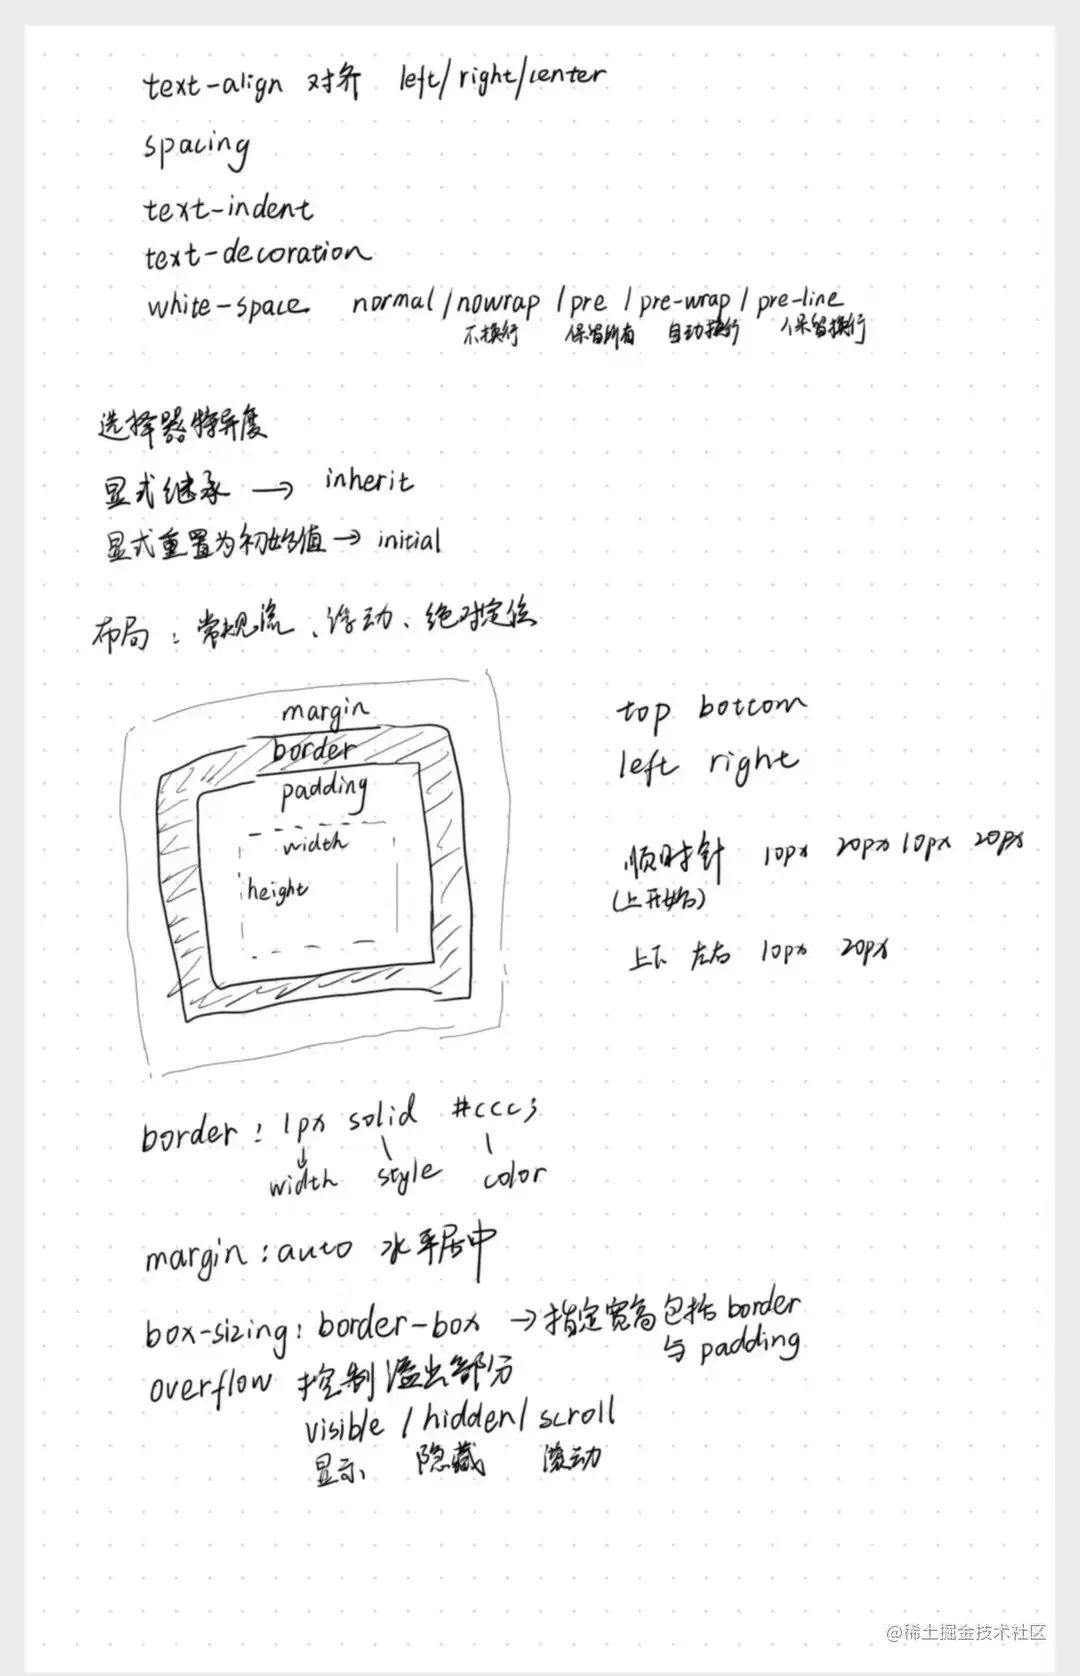 text-align 对齐 left/right/center
spacing
text-indent
text-decoration
white-space normal/nowrap/pre/pre-wrap/pre-line
不换行 保留所有 自动换行 保留换行
选择器特异度
显式继承 → inherit
显式重置为初始值 → initial
布局：常规流、浮动、绝对定位
margin
border
padding
width
height
top bottom
left right
顺时针 10px 20px 10px 20px
(上开始)
上下 左右 10px 20px
border: 1px solid #ccc;
width style color
margin:auto 水平居中
box-sizing: border-box → 指定宽高包括 border
与 padding
overflow 控制溢出部分
visible/hidden/scroll
显示 隐藏 滚动
@稀土掘金技术社区